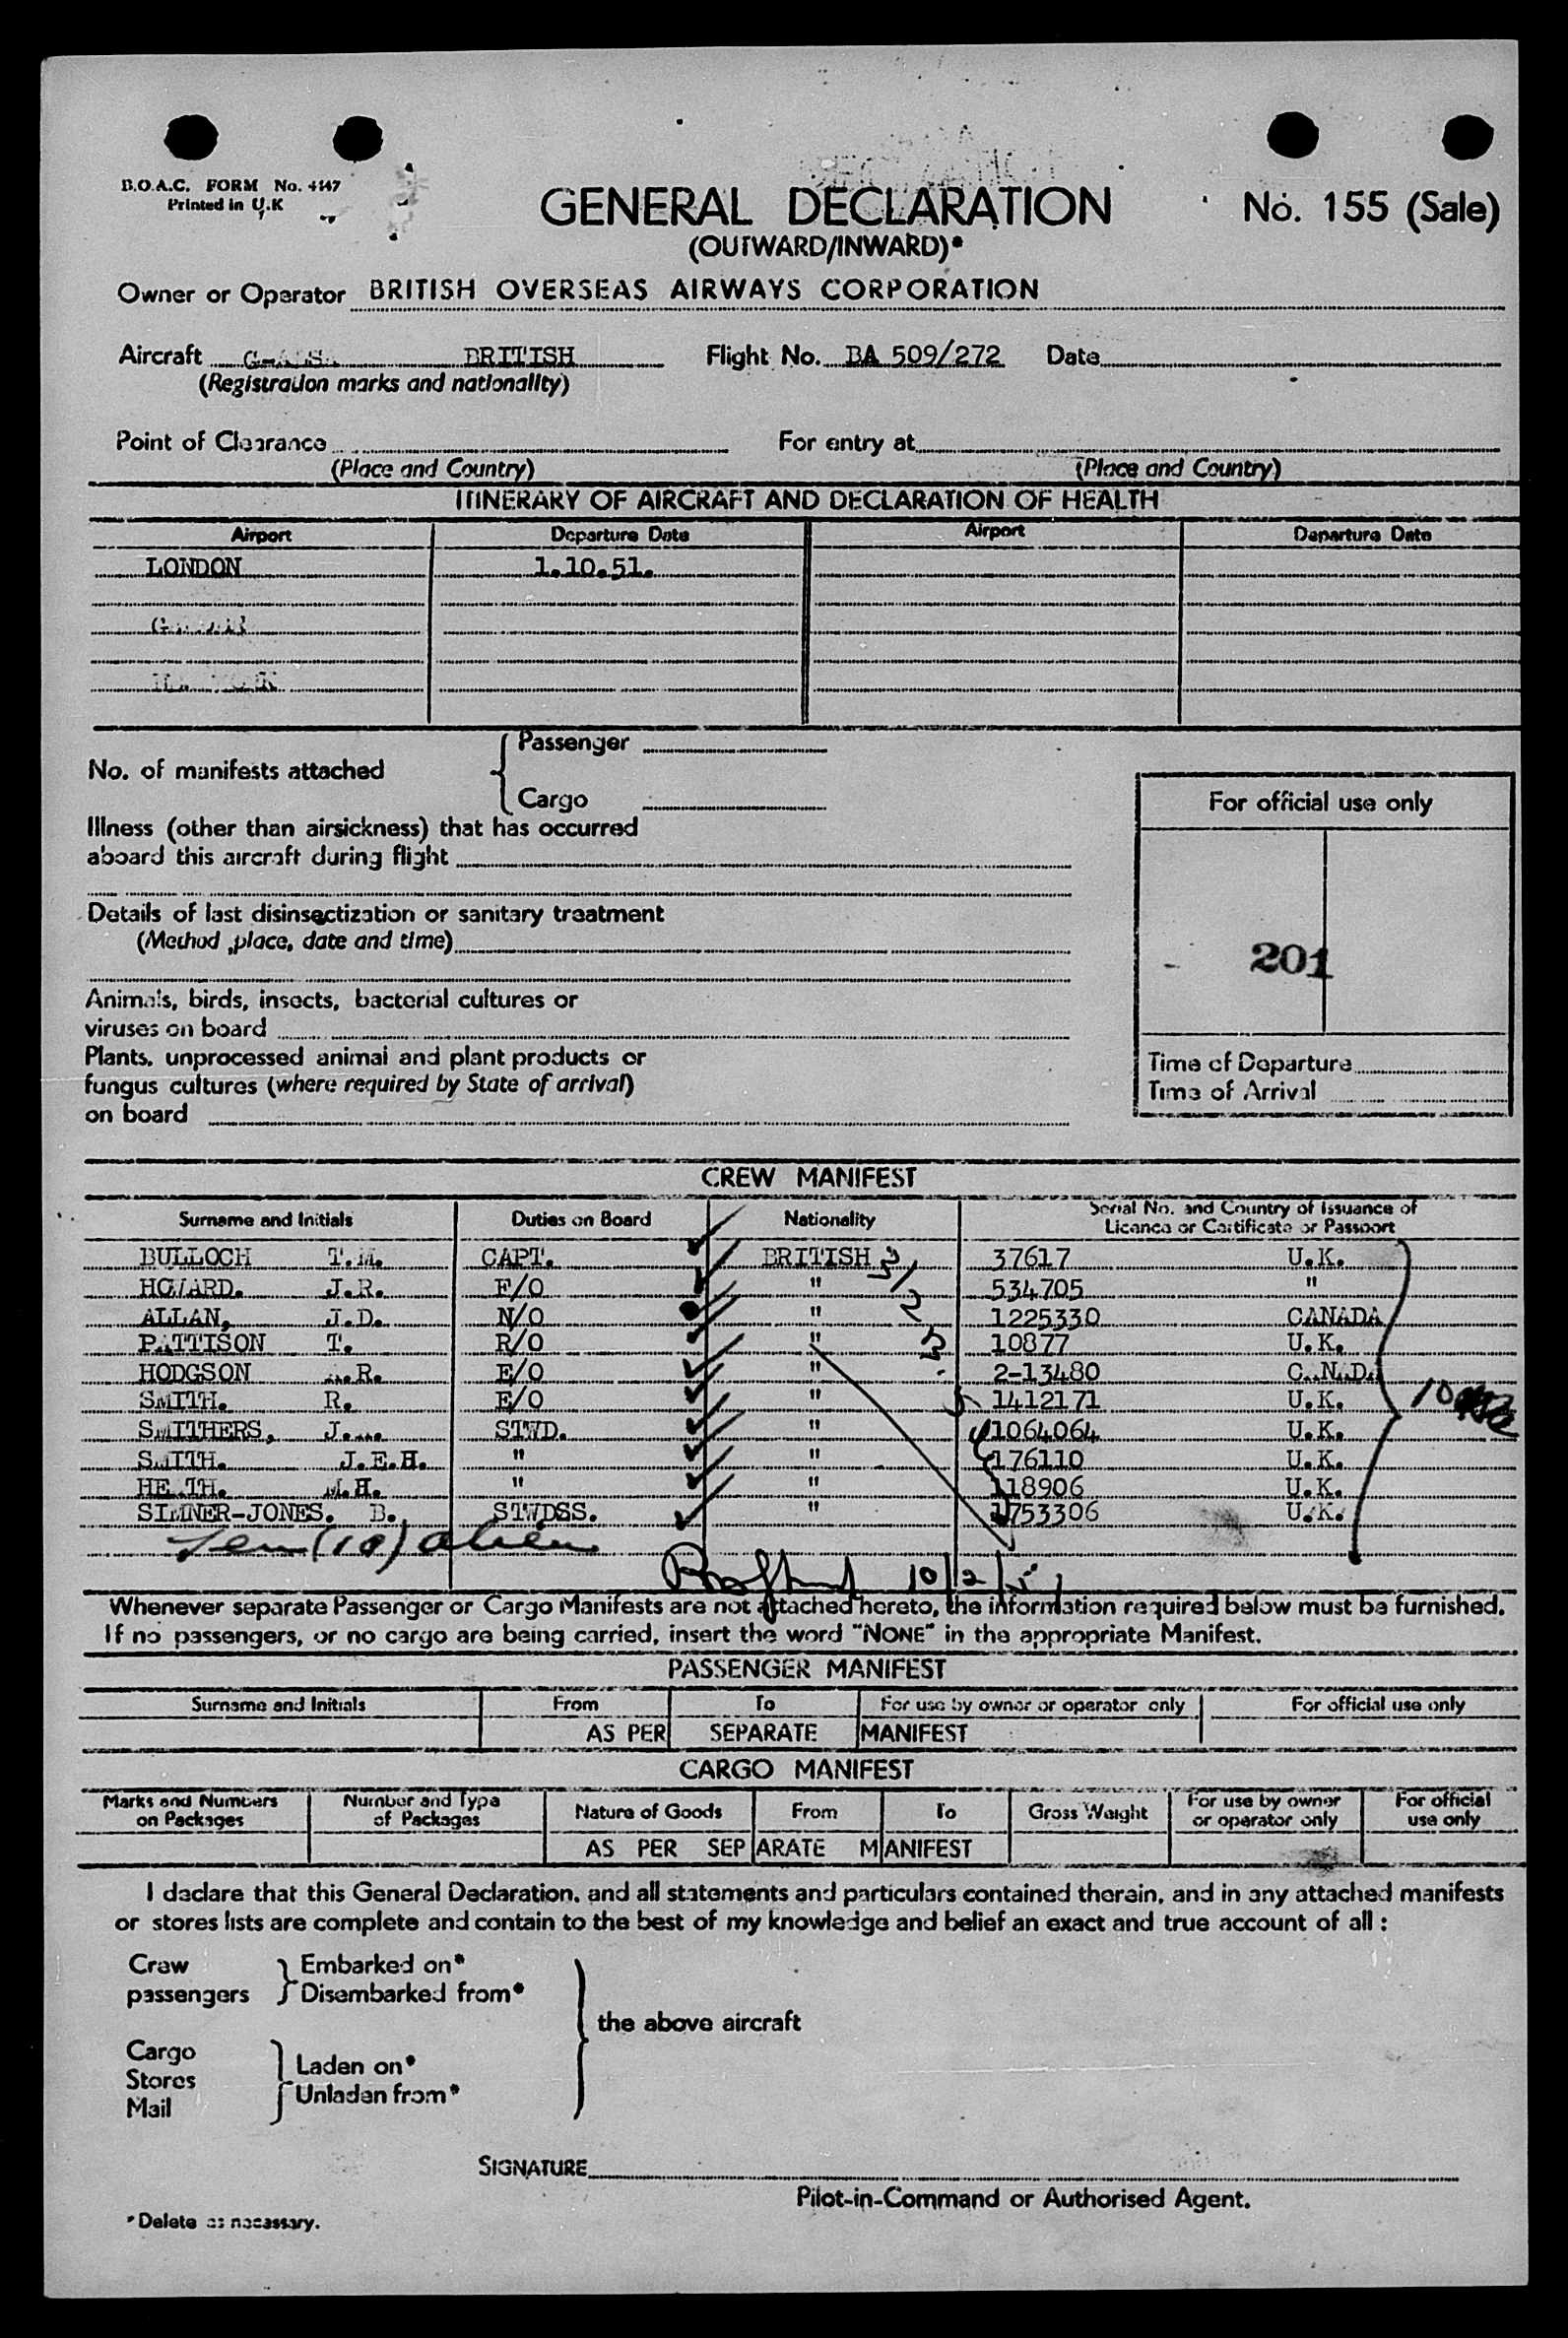 B.O.A.C. FORM No. 4147
Printed in U.K
GENERAL DECLARATION
No. 155 (Sale)
(OUTWARD/INWARD)*
Owner or Operator BRITISH OVERSEAS AIRWAYS CORPORATION
Aircraft BRITISH Flight No. BA 509/272 Date
(Registration marks and nationality)
Point of Clearance For entry at
(Place and Country) (Place and Country)
ITINERARY OF AIRCRAFT AND DECLARATION OF HEALTH
Airport Departure Date Airport Departure Date
LONDON 1.10.51.
No. of manifests attached
Passenger
Cargo
Illness (other than airsickness) that has occurred
aboard this aircraft during flight
Details of last disinsectization or sanitary treatment
(Method ,place, date and time)
Animals, birds, insects, bacterial cultures or
viruses on board
Plants, unprocessed animal and plant products or
fungus cultures (where required by State of arrival)
on board
For official use only
201
Time of Departure
Time of Arrival
CREW MANIFEST
Surname and Initials Duties on Board Nationality Serial No. and Country of Issuance of
Licence or Certificate or Passport
BULLOCH T.M. CAPT. BRITISH 37617 U.K.
HOWARD. J.R. F/O " 534705 "
ALLAN, J.D. N/O " 1225330 CANADA
PATTISON T. R/O " 10877 U.K.
HODGSON R. E/O " 2-13480
SMITH. R. E/O " 1412171 U.K.
SMITHERS, J. STWD. " 1064064 U.K.
SMITH. J.E.H. " " 176110 U.K.
HEATH. M.H. " " 118906 U.K.
SIMNER-JONES. B. STWDSS. " 1753306 U.K.
10
Ten (10) aliens
10/2/51
Whenever separate Passenger or Cargo Manifests are not attached hereto, the information required below must be furnished.
If no passengers, or no cargo are being carried, insert the word "NONE" in the appropriate Manifest.
PASSENGER MANIFEST
Surname and Initials From To For use by owner or operator only For official use only
AS PER SEPARATE MANIFEST
CARGO MANIFEST
Marks and Numbers on Packages Number and Type of Packages Nature of Goods From To Gross Weight For use by owner or operator only For official use only
AS PER SEPARATE MANIFEST
I declare that this General Declaration, and all statements and particulars contained therein, and in any attached manifests
or stores lists are complete and contain to the best of my knowledge and belief an exact and true account of all :
Crew Embarked on*
passengers Disembarked from*
the above aircraft
Cargo
Stores
Mail
Laden on*
Unladen from*
SIGNATURE
Pilot-in-Command or Authorised Agent.
*Delete as necessary.